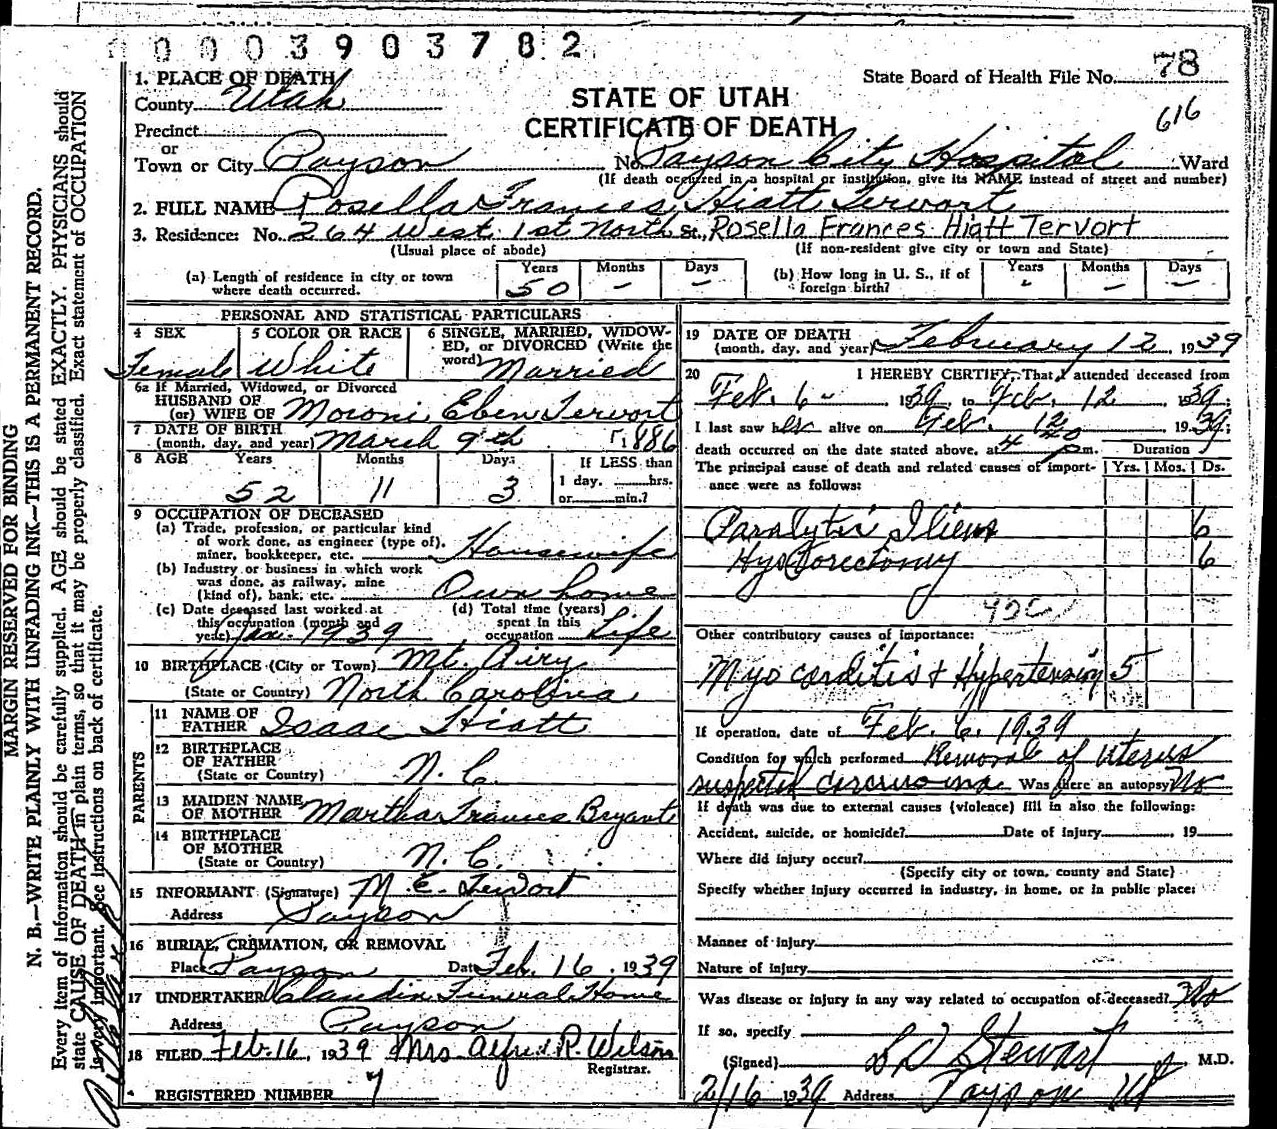 0003903782
1. PLACE OF DEATH
County Utah
Precinct
or
Town or City Payson
State Board of Health File No. 78
616
STATE OF UTAH
CERTIFICATE OF DEATH
No. Payson City Hospital Ward
(If death occurred in a hospital or institution, give its NAME instead of street and number)
2. FULL NAME Rosella Frances Hiatt Tervort
3. Residence: No. 264 West 1st North St., Rosella Frances Hiatt Tervort
(Usual place of abode) (If non-resident give city or town and State)
(a) Length of residence in city or town where death occurred. Years 50 Months – Days –
(b) How long in U. S., if of foreign birth? Years - Months – Days –
PERSONAL AND STATISTICAL PARTICULARS
4 SEX Female
5 COLOR OR RACE White
6 SINGLE, MARRIED, WIDOWED, or DIVORCED (Write the word) Married
6a If Married, Widowed, or Divorced
HUSBAND OF
(or) WIFE OF Moroni Eben Tervort
7 DATE OF BIRTH
(month, day, and year) March 9th 1886
8 AGE Years 52 Months 11 Days 3
If LESS than
1 day, hrs.
or min.?
9 OCCUPATION OF DECEASED
(a) Trade, profession, or particular kind
of work done, as engineer (type of),
miner, bookkeeper, etc. Housewife
(b) Industry or business in which work
was done, as railway, mine
(kind of), bank, etc. Own home
(c) Date deceased last worked at
this occupation (month and
year) Jan. 1939
(d) Total time (years)
spent in this
occupation Life
10 BIRTHPLACE (City or Town) Mt. Airy
(State or Country) North Carolina
PARENTS
11 NAME OF
FATHER Isaac Hiatt
12 BIRTHPLACE
OF FATHER
(State or Country) N. C.
13 MAIDEN NAME
OF MOTHER Martha Frances Bryant
14 BIRTHPLACE
OF MOTHER
(State or Country) N. C.
15 INFORMANT (Signature) M. E. Tervort
Address Payson
16 BURIAL, CREMATION, OR REMOVAL
Place Payson Date Feb. 16, 1939
17 UNDERTAKER Claudin Funeral Home
Address Payson
18 FILED Feb. 16, 1939 Mrs Alfred R. Wilson
Registrar.
REGISTERED NUMBER 7
19 DATE OF DEATH
(month, day, and year) February 12, 1939
20 I HEREBY CERTIFY, That I attended deceased from
Feb. 6- 1939, to Feb. 12, 1939;
I last saw her alive on Feb. 12 1939;
death occurred on the date stated above, at 4 40 p m. Duration
The principal cause of death and related causes of importance were as follows: Yrs. Mos. Ds.
Paralytic Ilieus 6
Hysterectomy 6
Other contributory causes of importance:
Myocarditis & Hypertension 5
If operation, date of Feb. 6, 1939
Condition for which performed Removal of Uterus
suspected carcinoma Was there an autopsy No
If death was due to external causes (violence) fill in also the following:
Accident, suicide, or homicide? Date of injury , 19
Where did injury occur?
(Specify city or town, county and State)
Specify whether injury occurred in industry, in home, or in public place:
Manner of injury
Nature of injury
Was disease or injury in any way related to occupation of deceased? No
If so, specify
(Signed) L D Stewart M.D.
2/16 1939 Address Payson Ut
MARGIN RESERVED FOR BINDING
N. B.—WRITE PLAINLY WITH UNFADING INK—THIS IS A PERMANENT RECORD.
Every item of information should be carefully supplied. AGE should be stated EXACTLY. PHYSICIANS should
state CAUSE OF DEATH in plain terms, so that it may be properly classified. Exact statement of OCCUPATION
is very important. See instructions on back of certificate.